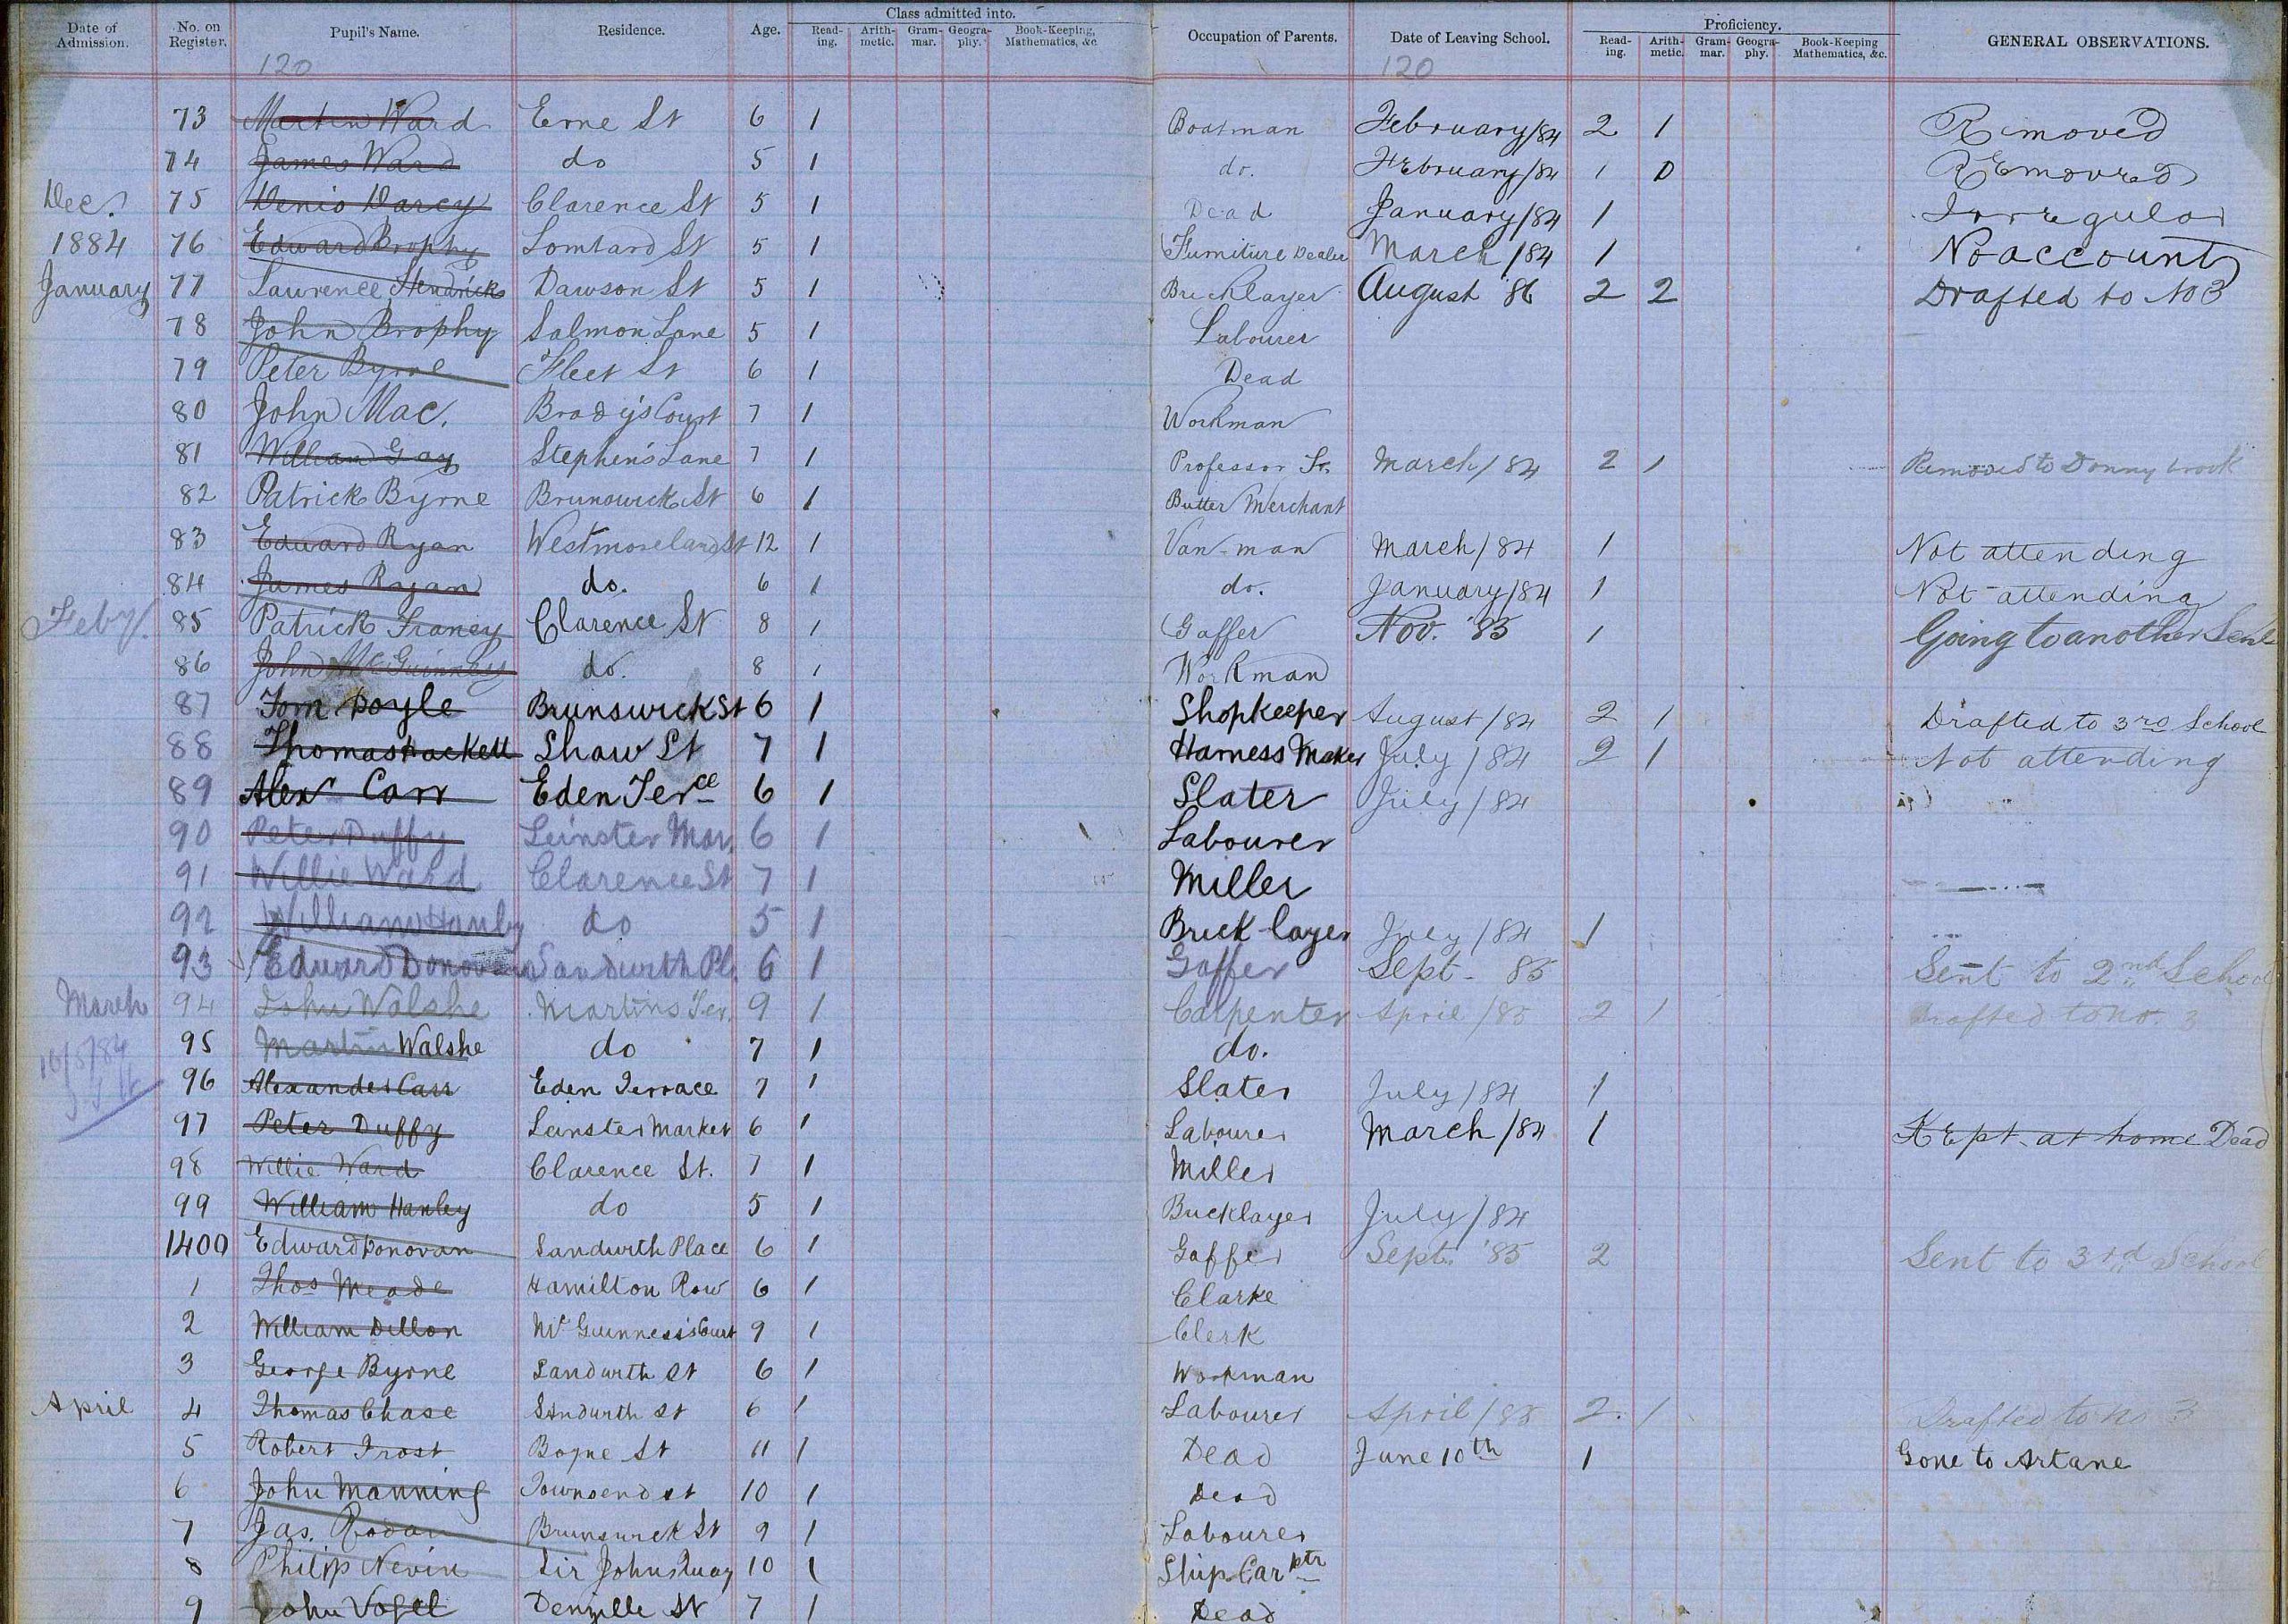 Date of Admission. No. on Register. Pupil's Name. Residence. Age. Class admitted into. Reading. Arithmetic. Grammar. Geography. Book-Keeping, Mathematics, &c. Occupation of Parents. Date of Leaving School. Proficiency. Reading. Arithmetic. Grammar. Geography. Book-Keeping Mathematics, &c. GENERAL OBSERVATIONS.
120 120
73 Martin Ward Erne St 6 1 Boatman February/84 2 1 Removed
74 James Ward do 5 1 do. February/84 1 0 Removed
Dec. 75 Denis Darcy Clarence St 5 1 Dead January/84 1 Irregular
1884 76 Edward Brophy Lombard St 5 1 Furniture Dealer March/84 1 No account
January 77 Lawrence Hendricks Dawson St 5 1 Bricklayer August 86 2 2 Drafted to No 3
78 John Brophy Salmon Lane 5 1 Labourer
79 Peter Byrne Fleet St 6 1 Dead
80 John Mac. Brady's Court 7 1 Workman
81 William Gay Stephen's Lane 7 1 Professor March/84 2 1 Removed to Donnybrook
82 Patrick Byrne Brunswick St 6 1 Butter Merchant
83 Edward Ryan Westmoreland St 12 1 Van-man March/84 1 Not attending
84 James Ryan do. 6 1 do. January/84 1 Not attending
Feby. 85 Patrick Franey Clarence St 8 1 Gaffer Nov. '85 1 Going to another
86 John McGuinness do. 8 1 Workman
87 Tom Doyle Brunswick St 6 1 Shopkeeper August/84 2 1 Drafted to 3rd School
88 Thomas Hackett Shaw St 7 1 Harness Maker July/84 2 1 Not attending
89 Alex Carr Eden Terce 6 1 Slater July/84
90 Peter Duffy Leinster Mar. 6 1 Labourer
91 Willie Ward Clarence St 7 1 Miller
92 William Hanley do 5 1 Brick-layer July/84 1
93 Edward Donovan Sandwith Pl. 6 1 Gaffer Sept. 85 Sent to 2nd School
March 94 John Walshe Martins Ter. 9 1 Carpenter April/85 2 1 Drafted to no. 3
95 Martin Walshe do 7 1 do.
16/5/84
96 Alexander Carr Eden Terrace 7 1 Slater July/84 1
97 Peter Duffy Leinster Market 6 1 Labourer March/84 1 Kept at home Dead
98 Willie Ward Clarence St. 7 1 Miller
99 William Hanley do 5 1 Bricklayer July/84
1400 Edward Donovan Sandwith Place 6 1 Gaffer Sept. '85 2 Sent to 3rd School
1 Thos Meade Hamilton Row 6 1 Clarke
2 William Dillon McGuinness's Court 9 1 Clerk
3 George Byrne Sandwith St 6 1 Workman
April 4 Thomas Chase Sandwith St 6 1 Labourer April/85 2 1 Drafted to no 3
5 Robert Frost Boyne St 11 1 Dead June 10th 1 Gone to Artane
6 John Manning Townsend St 10 1 Dead
7 Jas. Rodan Brunswick St 9 1 Labourer
8 Philip Nevin Sir Johns Quay 10 1 Ship Carptr
9 John Vogel Denzille St 7 1 Dead